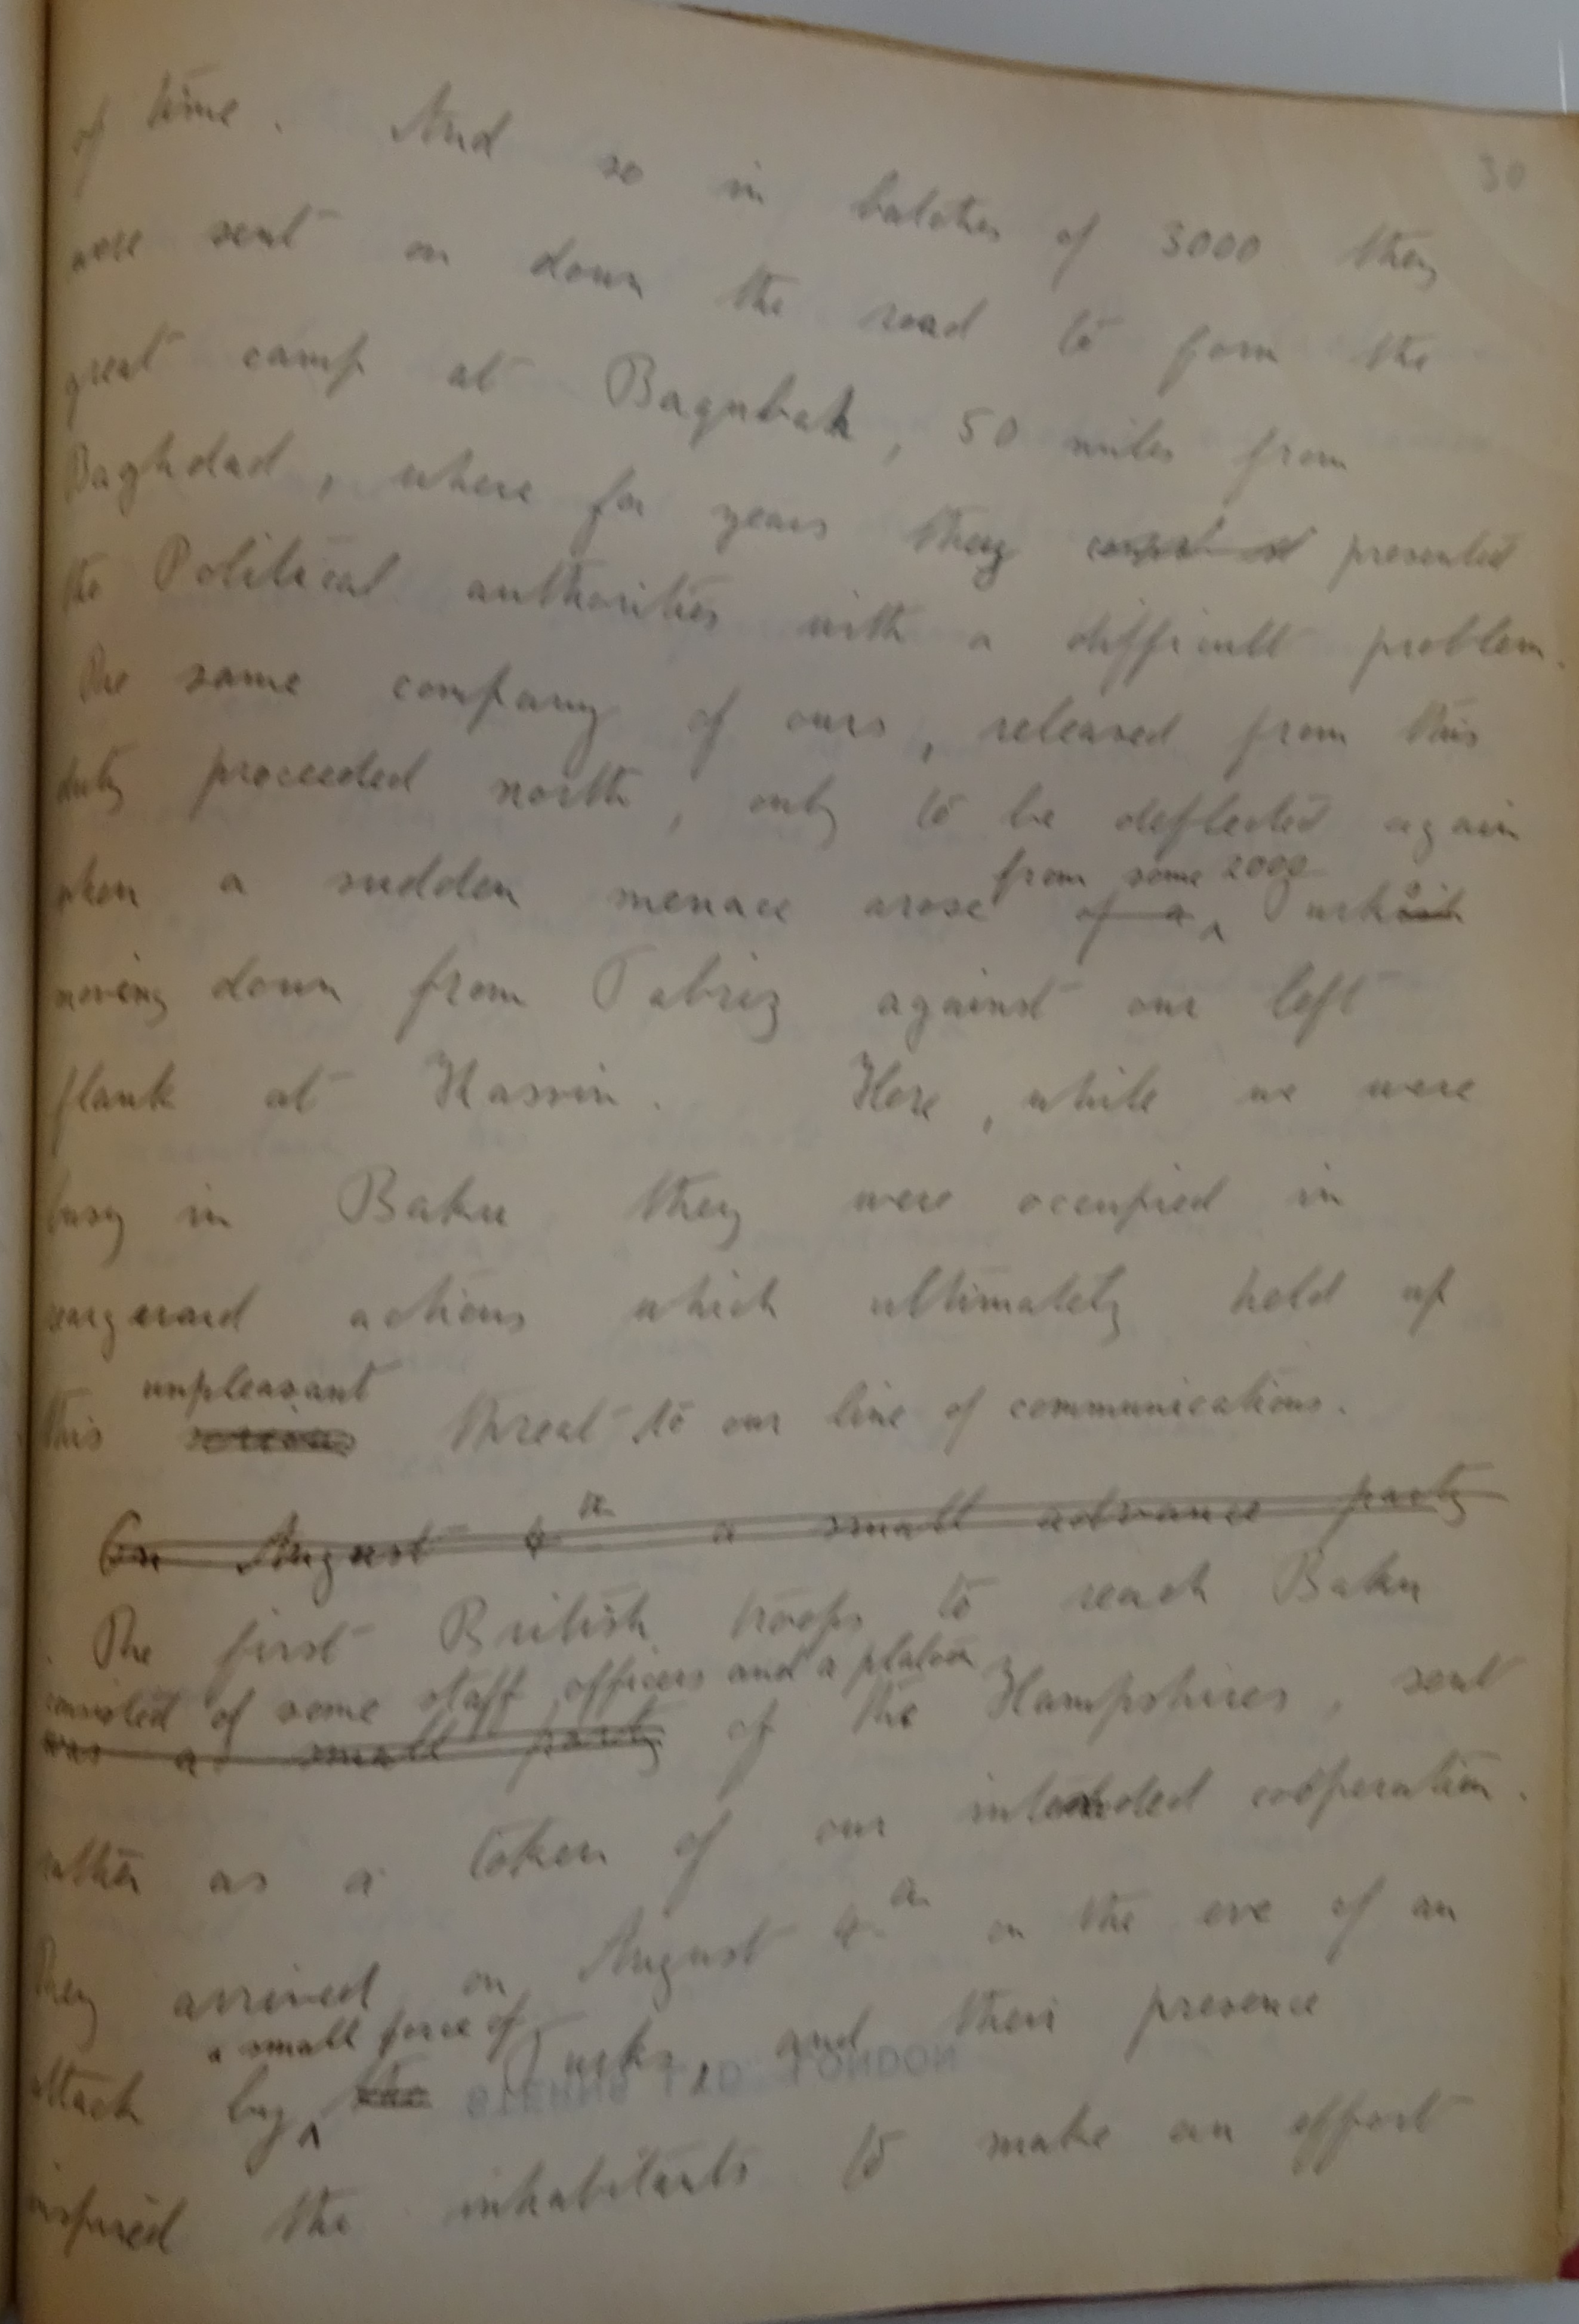 30
of time. And so in batches of 3000 they
were sent on down the road to form the
great camp at Baqubah, 50 miles from
Baghdad, where for years they presented
the Political authorities with a difficult problem.
The same company of ours, released from this
duty proceeded north, only to be deflected again
from some 2000
when a sudden menace arose of a Turks
moving down from Tabriz against our left
flank at Kasvin. Here, while we were
busy in Baku they were occupied in
rearguard actions which ultimately held up
unpleasant
this serious threat to our line of communications.
On August 4th a small advance party
The first British troops to reach Baku
consisted of some staff officers and a platoon
was a small party of the Hampshires, sent
rather as a token of our intended coöperation.
They arrived on August 4th on the eve of an
a small force of
attack by the Turks, and their presence
inspired the inhabitants to make an effort